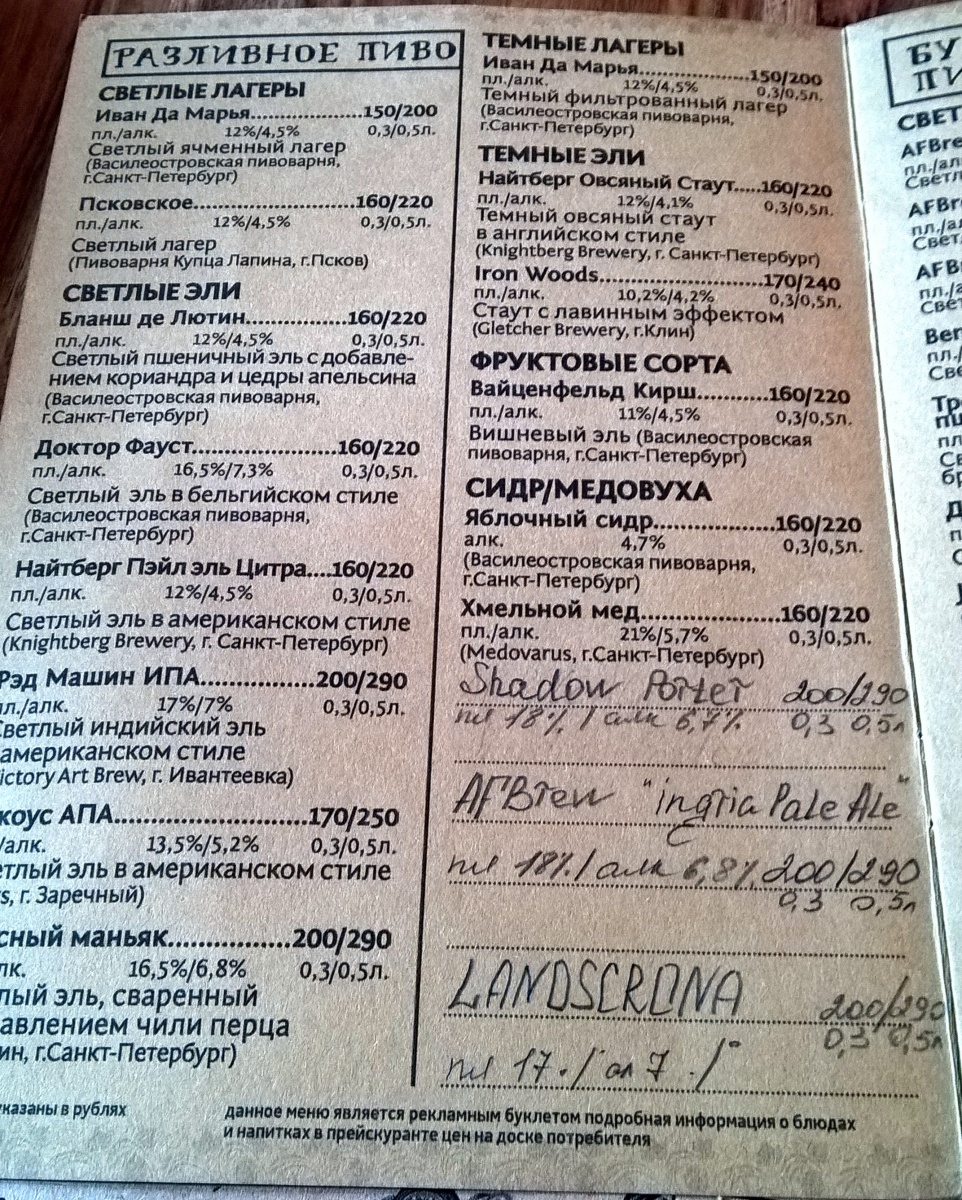 РАЗЛИВНОЕ ПИВО
СВЕТЛЫЕ ЛАГЕРЫ
Иван Да Марья..........................150/200
пл./алк. 12%/4,5% 0,3/0,5л.
Светлый ячменный лагер
(Василеостровская пивоварня,
г.Санкт-Петербург)
Псковское..........................160/220
пл./алк. 12%/4,5% 0,3/0,5л.
Светлый лагер
(Пивоварня Купца Лапина, г.Псков)
СВЕТЛЫЕ ЭЛИ
Бланш де Лютин...............160/220
пл./алк. 12%/4,5% 0,3/0,5л.
Светлый пшеничный эль с добавле-
нием кориандра и цедры апельсина
(Василеостровская пивоварня,
г.Санкт-Петербург)
Доктор Фауст.....................160/220
пл./алк. 16,5%/7,3% 0,3/0,5л.
Светлый эль в бельгийском стиле
(Василеостровская пивоварня,
г.Санкт-Петербург)
Найтберг Пэйл эль Цитра....160/220
пл./алк. 12%/4,5% 0,3/0,5л.
Светлый эль в американском стиле
(Knightberg Brewery, г. Санкт-Петербург)
Рэд Машин ИПА...............200/290
пл./алк. 17%/7% 0,3/0,5л.
Светлый индийский эль
американском стиле
ictory Art Brew, г. Ивантеевка)
коус АПА.........................170/250
/алк. 13,5%/5,2% 0,3/0,5л.
етлый эль в американском стиле
s, г. Заречный)
сный маньяк................200/290
лк. 16,5%/6,8% 0,3/0,5л.
лый эль, сваренный
авлением чили перца
ин, г.Санкт-Петербург)
указаны в рублях
ТЕМНЫЕ ЛАГЕРЫ
Иван Да Марья...............150/200
пл./алк. 12%/4,5% 0,3/0,5л.
Темный фильтрованный лагер
(Василеостровская пивоварня,
г.Санкт-Петербург)
ТЕМНЫЕ ЭЛИ
Найтберг Овсяный Стаут.....160/220
пл./алк. 12%/4,1% 0,3/0,5л.
Темный овсяный стаут
в английском стиле
(Knightberg Brewery, г. Санкт-Петербург)
Iron Woods......................170/240
пл./алк. 10,2%/4,2% 0,3/0,5л.
Стаут с лавинным эффектом
(Gletcher Brewery, г.Клин)
ФРУКТОВЫЕ СОРТА
Вайценфельд Кирш..........160/220
пл./алк. 11%/4,5% 0,3/0,5л.
Вишневый эль (Василеостровская
пивоварня, г.Санкт-Петербург)
СИДР/МЕДОВУХА
Яблочный сидр.................160/220
алк. 4,7% 0,3/0,5л.
(Василеостровская пивоварня,
г.Санкт-Петербург)
Хмельной мед...................160/220
пл./алк. 21%/5,7% 0,3/0,5л.
(Medovarus, г.Санкт-Петербург)
Shadow Porter 200/290
пл 18% / алк 6,7% 0,3 0,5л
AFBrew "ingria Pale Ale"
пл 18% / алк 6,8% 200/290
0,3 0,5л
LANDSCRONA 200/290
0,3 0,5л
пл 17 ./ ал 7 ./
данное меню является рекламным буклетом подробная информация о блюдах
и напитках в прейскуранте цен на доске потребителя
БУ
ПИ
СВЕТ
AFBre
пл./ал
Светл
AFBr
пл./ал
Свет
AFB
пл./а
Свет
Бел
пл./
Све